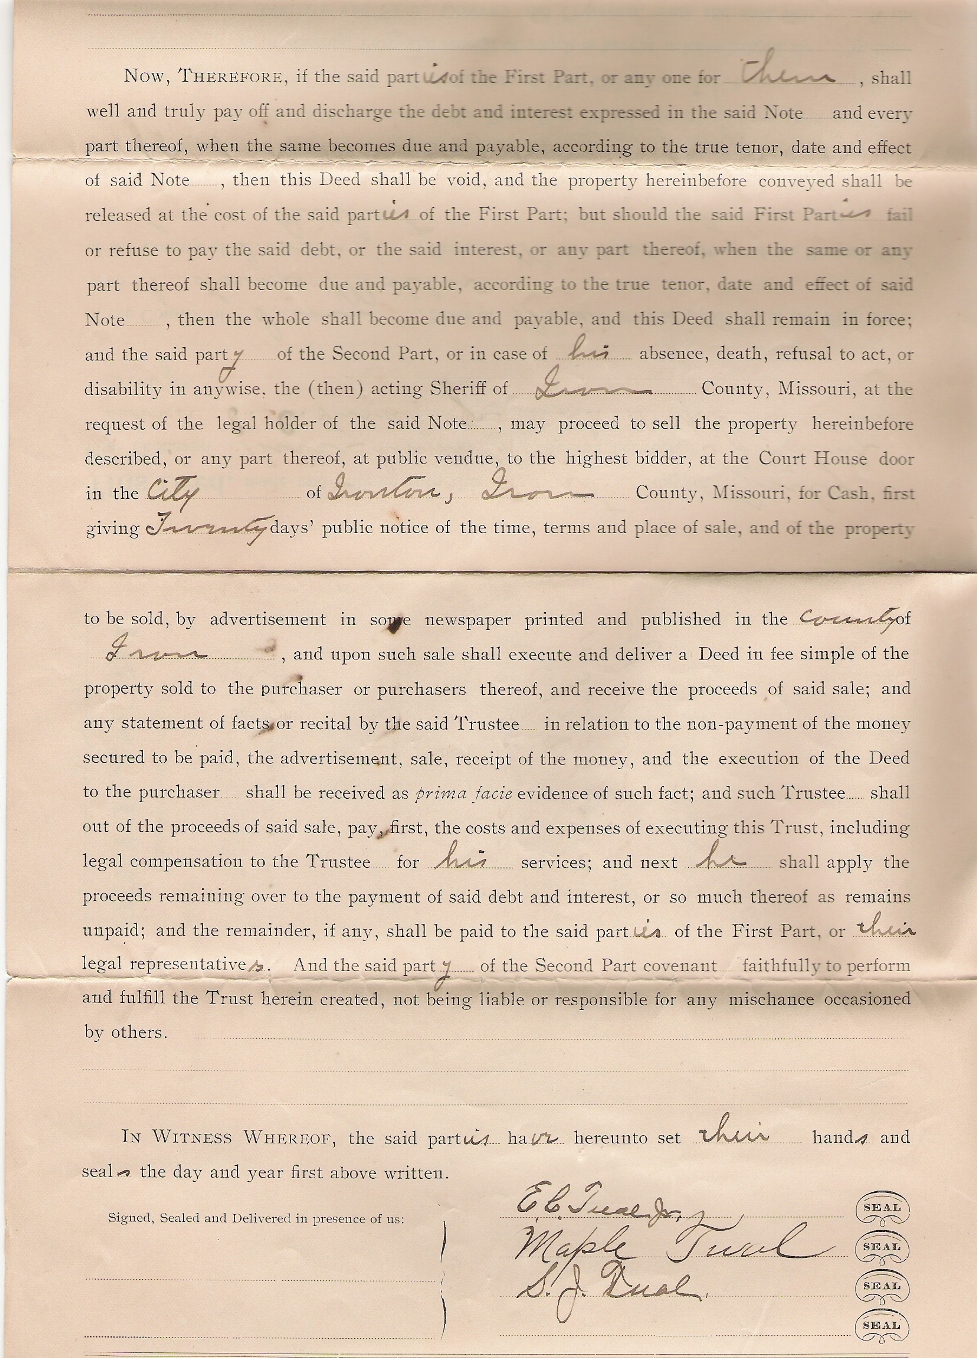 NOW, THEREFORE, if the said parties of the First Part, or any one for them, shall
well and truly pay off and discharge the debt and interest expressed in the said Note and every
part thereof, when the same becomes due and payable, according to the true tenor, date and effect
of said Note, then this Deed shall be void, and the property hereinbefore conveyed shall be
released at the cost of the said parties of the First Part; but should the said First Parties fail
or refuse to pay the said debt, or the said interest, or any part thereof, when the same or any
part thereof shall become due and payable, according to the true tenor, date and effect of said
Note, then the whole shall become due and payable, and this Deed shall remain in force;
and the said party of the Second Part, or in case of his absence, death, refusal to act, or
disability in anywise, the (then) acting Sheriff of Iron County, Missouri, at the
request of the legal holder of the said Note, may proceed to sell the property hereinbefore
described, or any part thereof, at public vendue, to the highest bidder, at the Court House door
in the City of Ironton, Iron County, Missouri, for Cash, first
giving Twenty days' public notice of the time, terms and place of sale, and of the property
to be sold, by advertisement in some newspaper printed and published in the county of
Iron, and upon such sale shall execute and deliver a Deed in fee simple of the
property sold to the purchaser or purchasers thereof, and receive the proceeds of said sale; and
any statement of facts or recital by the said Trustee in relation to the non-payment of the money
secured to be paid, the advertisement, sale, receipt of the money, and the execution of the Deed
to the purchaser shall be received as prima facie evidence of such fact; and such Trustee shall
out of the proceeds of said sale, pay, first, the costs and expenses of executing this Trust, including
legal compensation to the Trustee for his services; and next he shall apply the
proceeds remaining over to the payment of said debt and interest, or so much thereof as remains
unpaid; and the remainder, if any, shall be paid to the said parties of the First Part, or their
legal representatives. And the said party of the Second Part covenant faithfully to perform
and fulfill the Trust herein created, not being liable or responsible for any mischance occasioned
by others.
IN WITNESS WHEREOF, the said parties have hereunto set their hands and
seals the day and year first above written.
Signed, Sealed and Delivered in presence of us:
E.C. Jr. SEAL
Maple SEAL
S. J. SEAL
SEAL